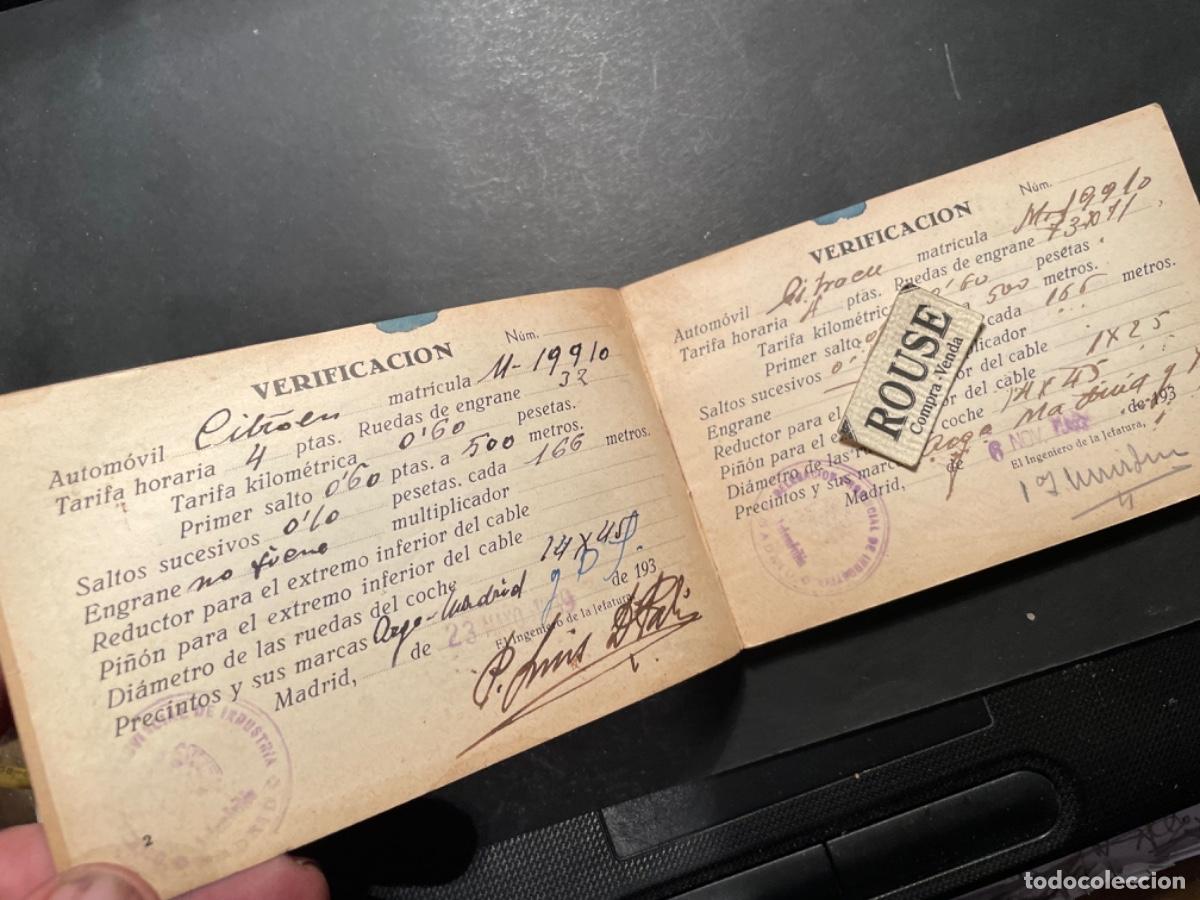 Núm.
VERIFICACION
Automóvil Citroen matrícula M-19910
Tarifa horaria 4 ptas. Ruedas de engrane 32
Tarifa kilométrica 0'60 pesetas.
Primer salto 0'60 ptas. a 500 metros.
Saltos sucesivos 0'10 pesetas. cada 166 metros.
Engrane no tiene multiplicador
Reductor para el extremo inferior del cable
Piñón para el extremo inferior del cable
Diámetro de las ruedas del coche 14 x 45
Precintos y sus marcas Madrid
Madrid, de 23 MAYO de 193
El Ingeniero de la Jefatura,
P. Luis
DE INDUSTRIA
2
Núm.
VERIFICACION
Automóvil Citroen matrícula M-19910
Tarifa horaria 4 ptas. Ruedas de engrane
Tarifa kilométrica 0'60 pesetas
Primer salto a 500 metros.
Saltos sucesivos cada 166 metros.
Engrane
Reductor para el del cable 1 x 25
Piñón para el del cable
Diámetro de las coche 14 x 45
Precintos y sus
Madrid, de 6 NOV. de 193
El Ingeniero de la Jefatura,
DE INDUSTRIA
ROUSE
Compra-Venta
todocoleccion